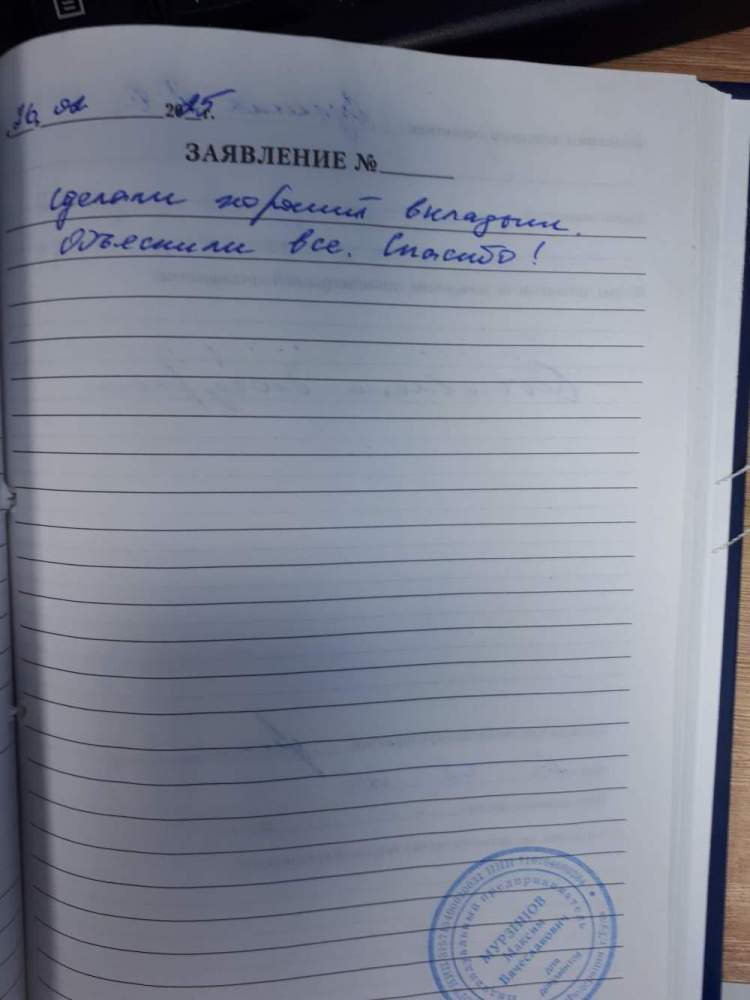 26. 02 2025г.
ЗАЯВЛЕНИЕ №
Сделали хороший вкладыш.
Объеснили все. Спасибо!
Индивидуальный предприниматель
МУРЗИНОВ
Максим
Вячеславович
для
документов